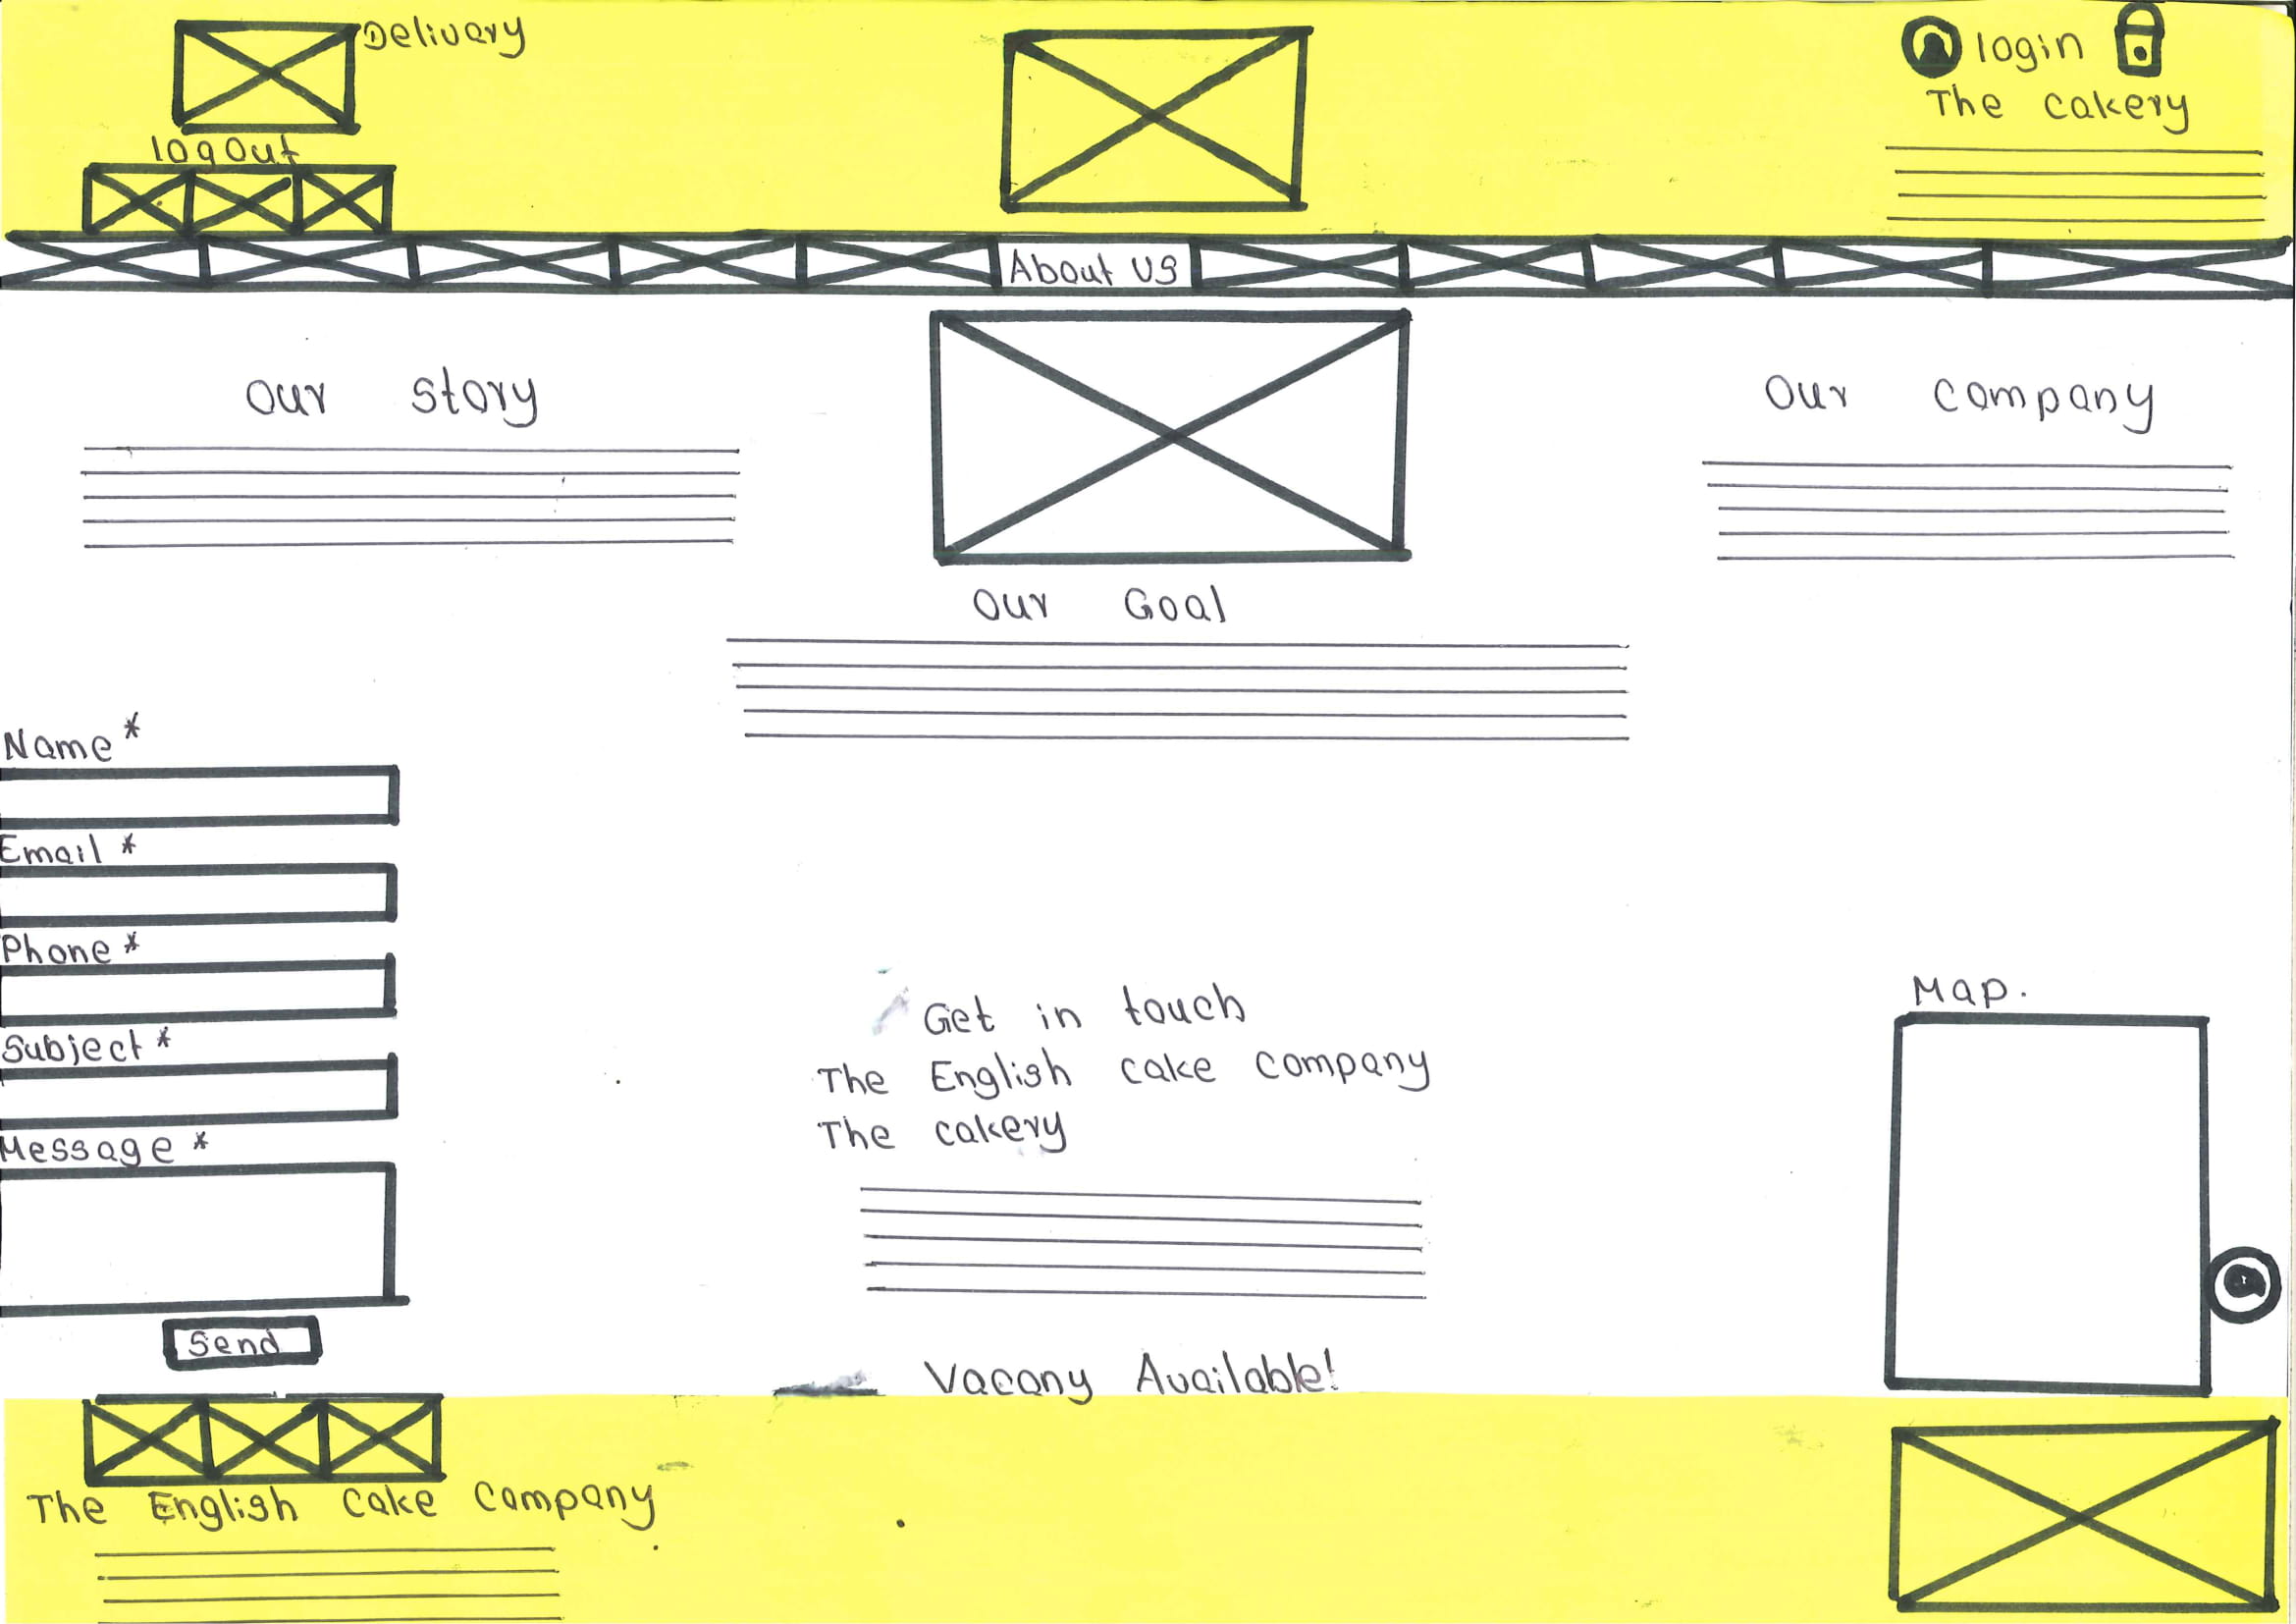 Delivery
login
The cakery
logout
About US
our story
our company
our Goal
Name*
Email *
Phone *
Subject *
Message *
Send
Map.
Get in touch
The English cake company
The cakery
Vacany Available!
The English cake company